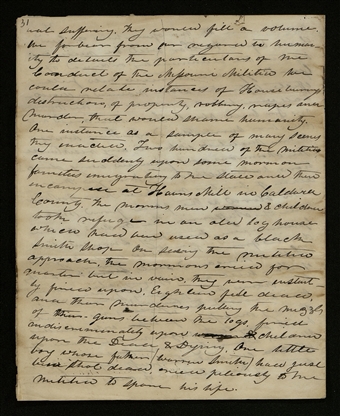 31
ual suffering, they would fill a volume.
We forbear from our regard to human-
ity to detail the particulars of the
Conduct of the Missouri Militia. We
could relate instances of House burnings
destructions, of property, robbing, rapes and
Murder, that would shame humanity.
One instance as a sample of many scenes
they enacted, Two hundred of the Militia
came suddenly upon some mormon
families emigrating to the State and then
encamped at Hauns Mill in Caldwell
County, the mormon men & children
took refuge in an old log house
which had been used as a black
smiths shop. On seeing the militia
approach, the mormons cried for
quarter but in vain, they were instant-
ly fired upon, Eighteen fell dead,
and their murderers putting the muzzles
of their guns between the logs, fired
indiscriminately upon children
upon the Dead & Dying. One little
boy whose father (Warren Smith) had just
been shot dead, cried piteously to the
militia to spare his life.